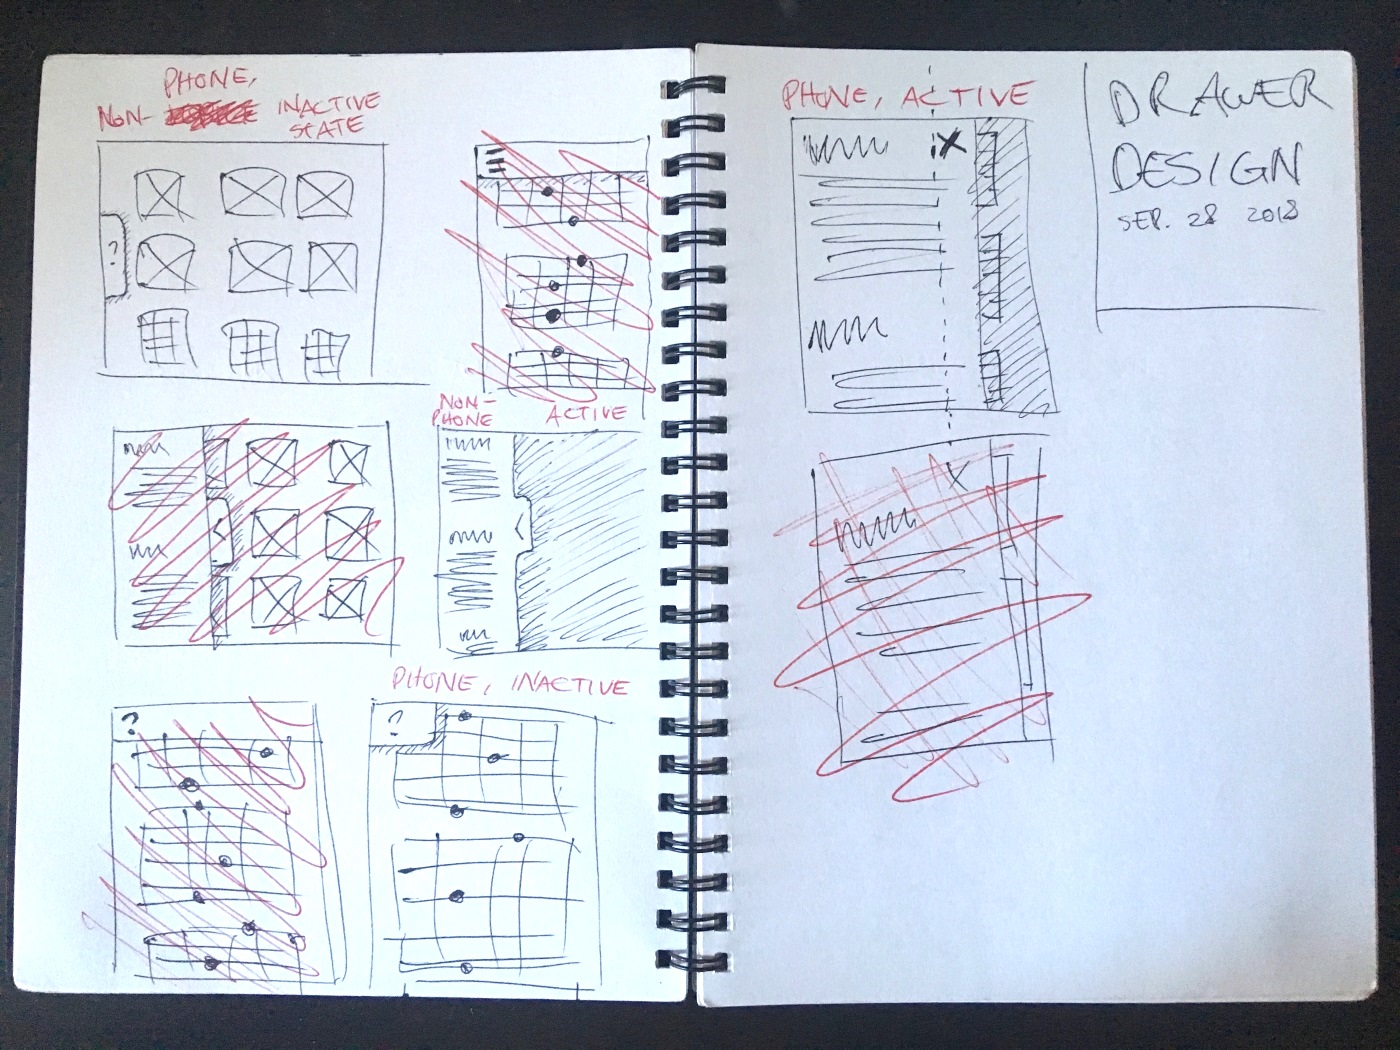 PHONE,
NON- INACTIVE
STATE
?
NON-
PHONE ACTIVE
PHONE, INACTIVE
?
?
PHONE, ACTIVE
X
X
DRAWER
DESIGN
SEP. 28 2018